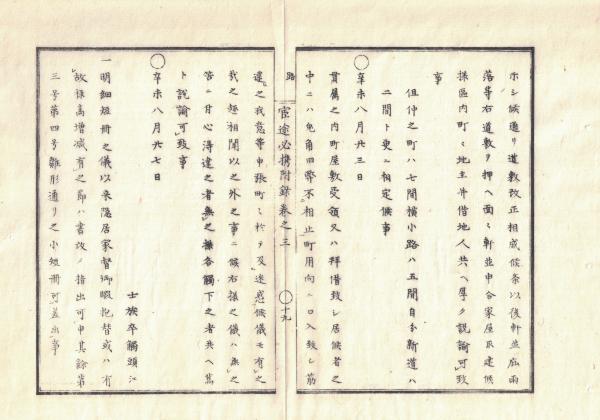 ホシ候通リ道敷改正相成候条以後軒並庇雨
落等右道敷ヲ押ヘ面ミ軒並申合家屋取建候
様区内町ミ地主幷借地人共ヘ厚ク説諭可致
事
但仲之町ハ七間横小路ハ五間自分新道ハ
二間ト更ニ相定候事
○辛未八月廿三日
貫属之内町屋敷受領又ハ拝借致シ居候者之
中ニハ兎角旧弊不相止町用向ニ口入致シ筋
違之我意等申張町ミ於テ及迷惑候儀モ有之
我之趣相聞以之外之事ニ候右様之儀ハ無之
筈ニ付心得違之者無之様各觸下之者共ヘ篤
ト説諭可致事
○辛未八月廿七日
士族卒觸頭江
一明細短冊之儀以来隠居家督御暇抱替或ハ有
故禄高増減有之節ハ書改メ指出可申其餘第
三号第四号雛形通リ之小短冊可差出事
路 官途必携附録巻之三 ○十九